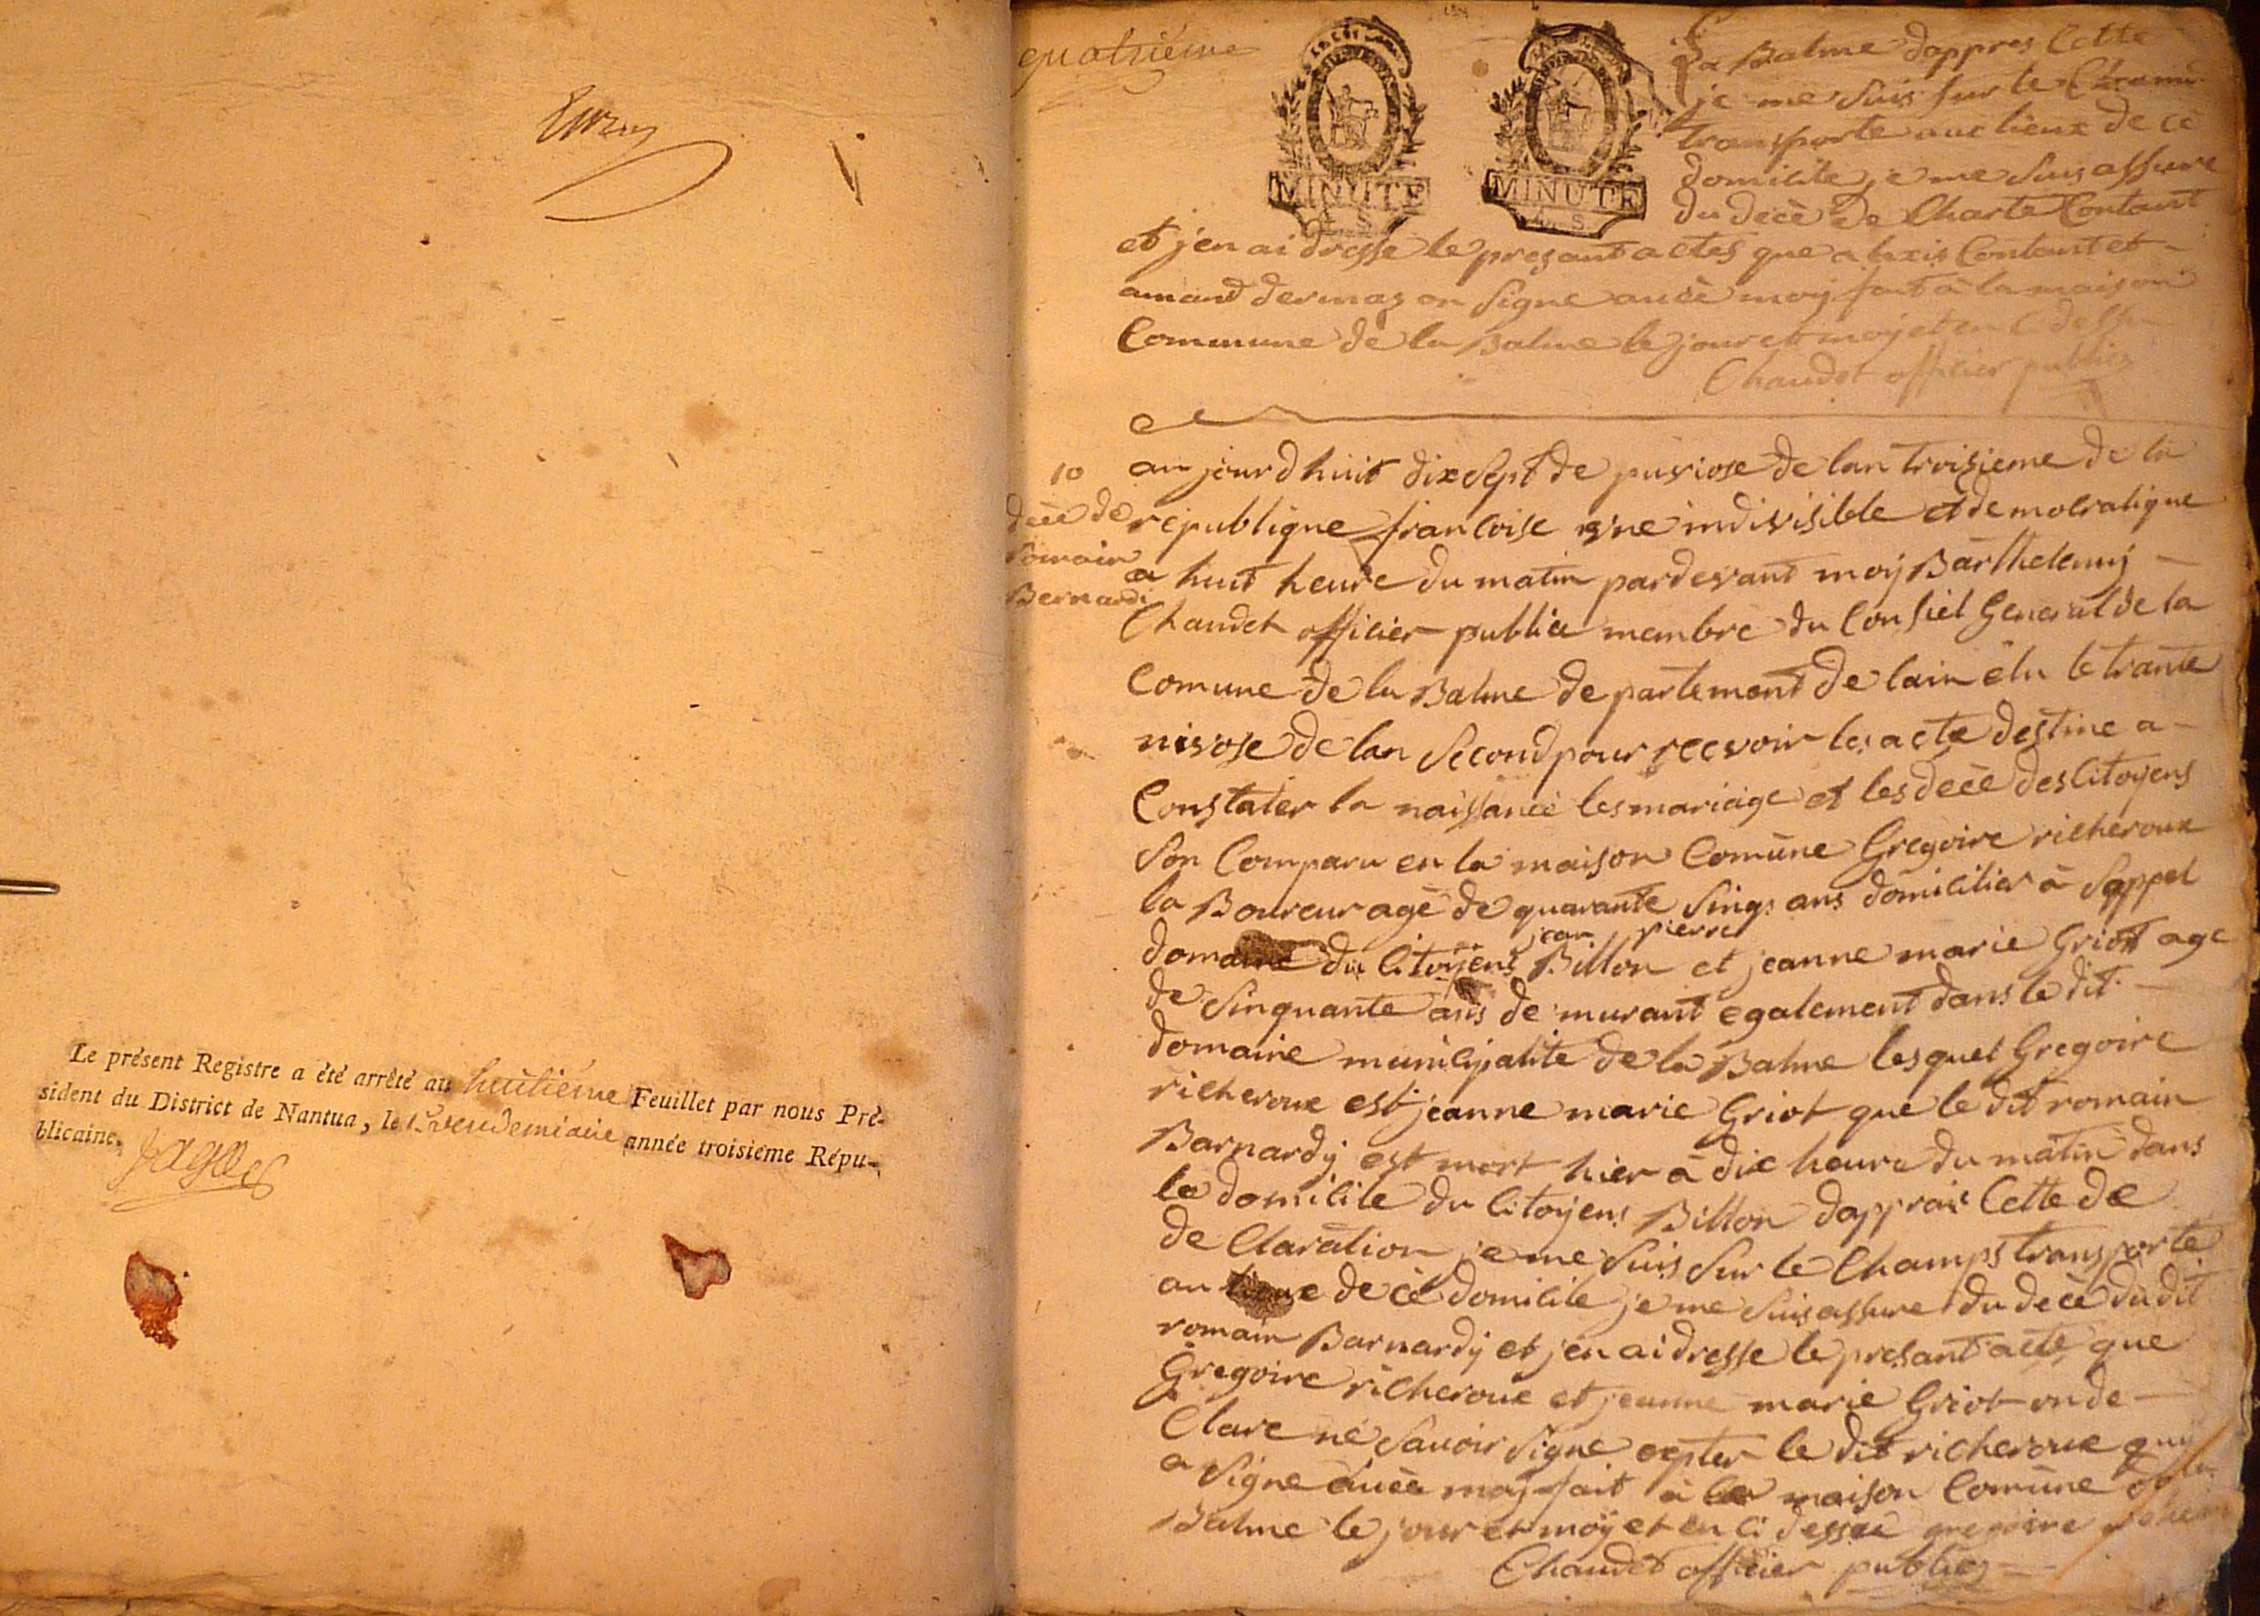 Le présent Registre a été arrêté au huitiéme Feuillet par nous Pré-
sident du District de Nantua, le vendemiaire année troisiéme Répu-
blicaine.
quatriéme
MINUTE
4. S
MINUTE
4. S
La Balme dappres Cette
je me suis sur le Chamt
transporte aux lieux de ce
domicile je me suis assure
du decè de Charle Contant
et j'en ai dresse le presant actes que alexis Contant et
amand dermaz on signe avec moy fait à la maison
Commune de la Balme le jour et moy et en Cidessu
Chaudet officier public
10
decè de
Romain
Bernardi
aujourdhuit dix sept de puviose de lan troisieme de la
république francoise une indivisible et democratique
a huit heure du matin pardevant moy Barthelemy
Chaudet officier public membre du Consiel General de la
Comune de la Balme departement de lain élu le trante
nivose de lan second pour recevoir les acte destine a
Constater la naissance les mariage et les decè des Citoyens
son Comparu en la maison Comune Gregoire richeroux
laboureur agé de quarante sinq ans domicilier à sappel
jean pierre
domaine du Citoyens Billon et jeanne marie Griot age
de sinquante ans demurant egalement dans le dit
domaine municipalite de la Balme lesquel Gregoire
richeroux est jeanne marie Griot que le dit romain
Barnardy est mort hier à dix heure du matin dans
le domicile du Citoyens Billon dapprais Cette de
de Claration je me suis sur le Champs transporté
au lieux de cè domicile je me suis assure du decè du dit
romain Barnardy et j'en ai dresse le presant acte que
Gregoire richeroux et jeanne marie Griot on de
Clare né savoir signe exepter le dit richeroux quy
a signe avec moy fait à la maison Comune de la
Balme le jour et moy et en Ci dessu gregoire
Chaudet officier public